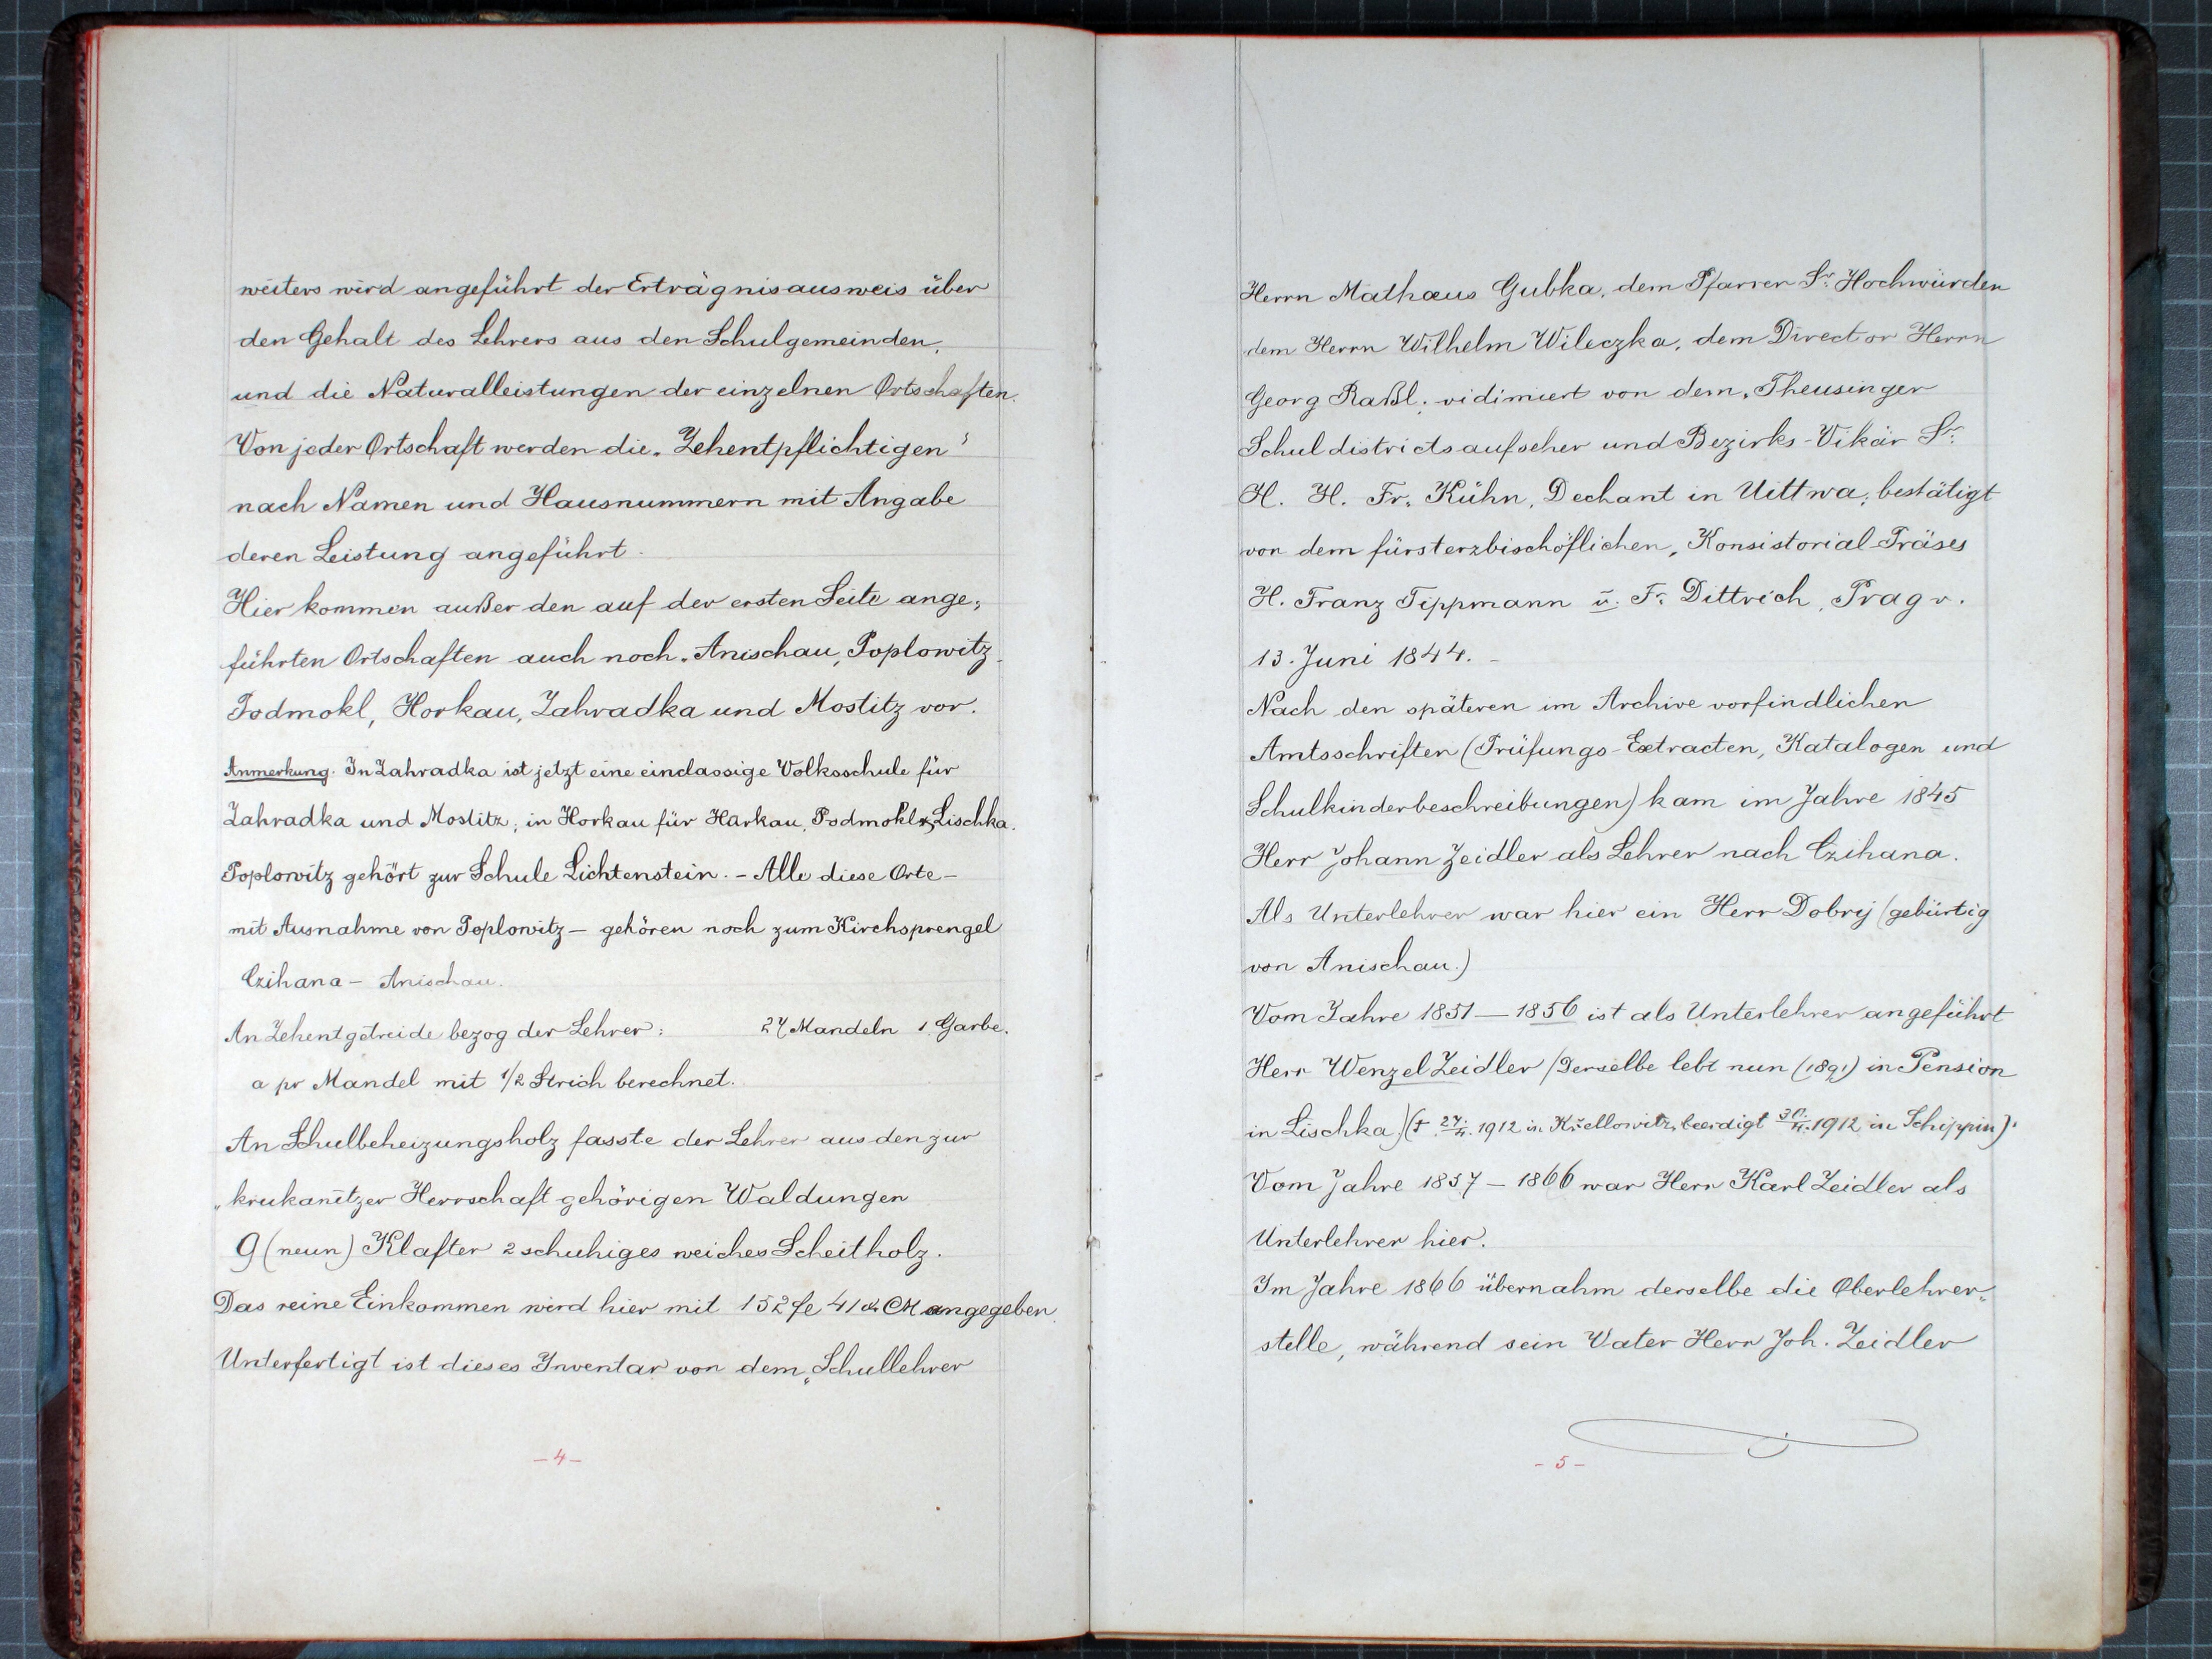 weiters wird angeführt der Erträgnisausweis über
den Gehalt des Lehrers aus den Schulgemeinden,
und die Naturalleistungen der einzelnen Ortschaften.
Von jeder Ortschaft werden die „Zehentpflichtigen“
nach Namen und Hausnummern mit Angabe
deren Leistung angeführt.
Hier kommen außer den auf der ersten Seite ange„
führten Ortschaften auch noch „Anischau, Poplowitz,
Podmokl, Horkau, Zahradka und Mostitz vor.
Anmerkung. In Zahradka ist jetzt eine einclassige Volksschule für
Zahradka und Mostitz; in Horkau für Harkau, Podmokl & Lischka.
Poplowitz gehört zur Schule Lichtenstein. – Alle diese Orte –
mit Ausnahme von Poplowitz – gehören noch zum Kirchsprengel
Czihana – Anischau.
An Zehentgetreide bezog der Lehrer: 27 Mandeln 1 Garbe.
a pr Mandel mit 1/2 Strich berechnet.
An Schulbeheizungsholz fasste der Lehrer aus den zur
„krukanitzer Herrschaft gehörigen Waldungen
9 (neun) Klafter 2 schuhiges weiches Scheitholz.
Das reine Einkommen wird hier mit 152 fl 41 kr CM angegeben.
Unterfertigt ist dieses Inventar von dem „Schullehrer
– 4 –
Herrn Mathaeus Gubka, dem Pfarrer Sr. Hochwürden
dem Herrn Wilhelm Wileczka, dem Director Herrn
Georg Raßl; vidimiert von dem „Theusinger
Schuldistrictsaufseher und Bezirks-Vikär Sr.
H. H. Fr. Kühn, Dechant in Uittwa; bestätigt
von dem fürsterzbischöflichen „Konsistorial-Präses
H. Franz Tippmann u. Fr. Dittrich, Prag v.
13. Juni 1844. –
Nach den späteren im Archive vorfindlichen
Amtsschriften (Prüfungs-Extracten, Katalogen und
Schulkinderbeschreibungen) kam im Jahre 1845
Herr Johann Zeidler als Lehrer nach Czihana.
Als Unterlehrer war hier ein Herr Dobrý (gebürtig
von Anischau.)
Vom Jahre 1851 – 1856 ist als Unterlehrer angeführt
Herr Wenzel Zeidler (Derselbe lebt nun (1891) in Pension
in Lischka.) († 27./II. 1912 in Křellowitz, beerdigt 30./II. 1912 in Schippin).
Vom Jahre 1857 – 1866 war Herr Karl Zeidler als
Unterlehrer hier.
Im Jahre 1866 übernahm derselbe die Oberlehrer„
stelle, während sein Vater Herr Joh. Zeidler
– 5 –